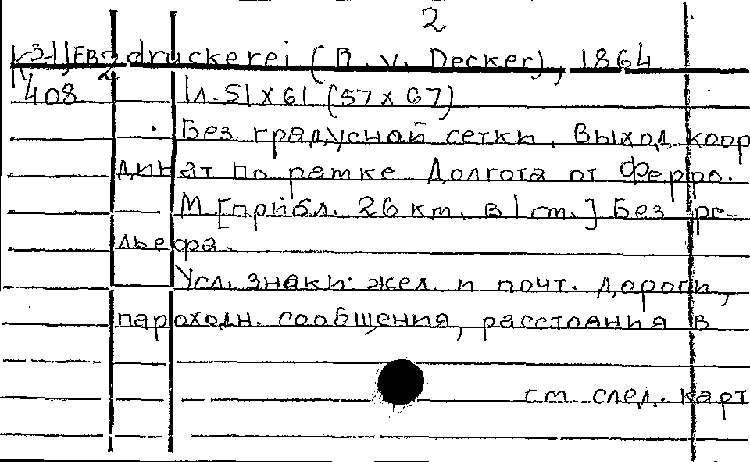 2
К 3-Ц/ЕВ2 druckerei (R. v. Decker), 1864
408 1л. 51 х 61 (57 х 67)
Без градусной сетки. Выход коор
динат по рамке Долгота от Ферро.
М [прибл. 26 км. в 1 ст.] Без ре-
льефа.
Усл. знаки: жел. и почт. дороги,
пароходн. сообщения, расстояния в
см след. карт